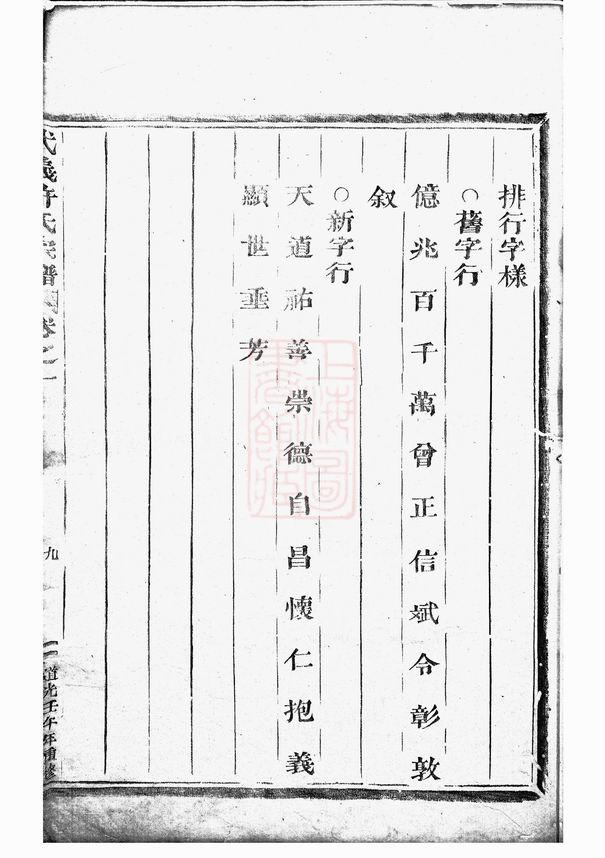 排行字樣
○舊字行
億兆百千萬曾正信斌令彰敦
叙
○新字行
天道祐善崇德自昌懷仁抱義
顯世垂芳
武義許氏宗譜 卷之一
九
道光壬午年重修
上海圖
書館藏